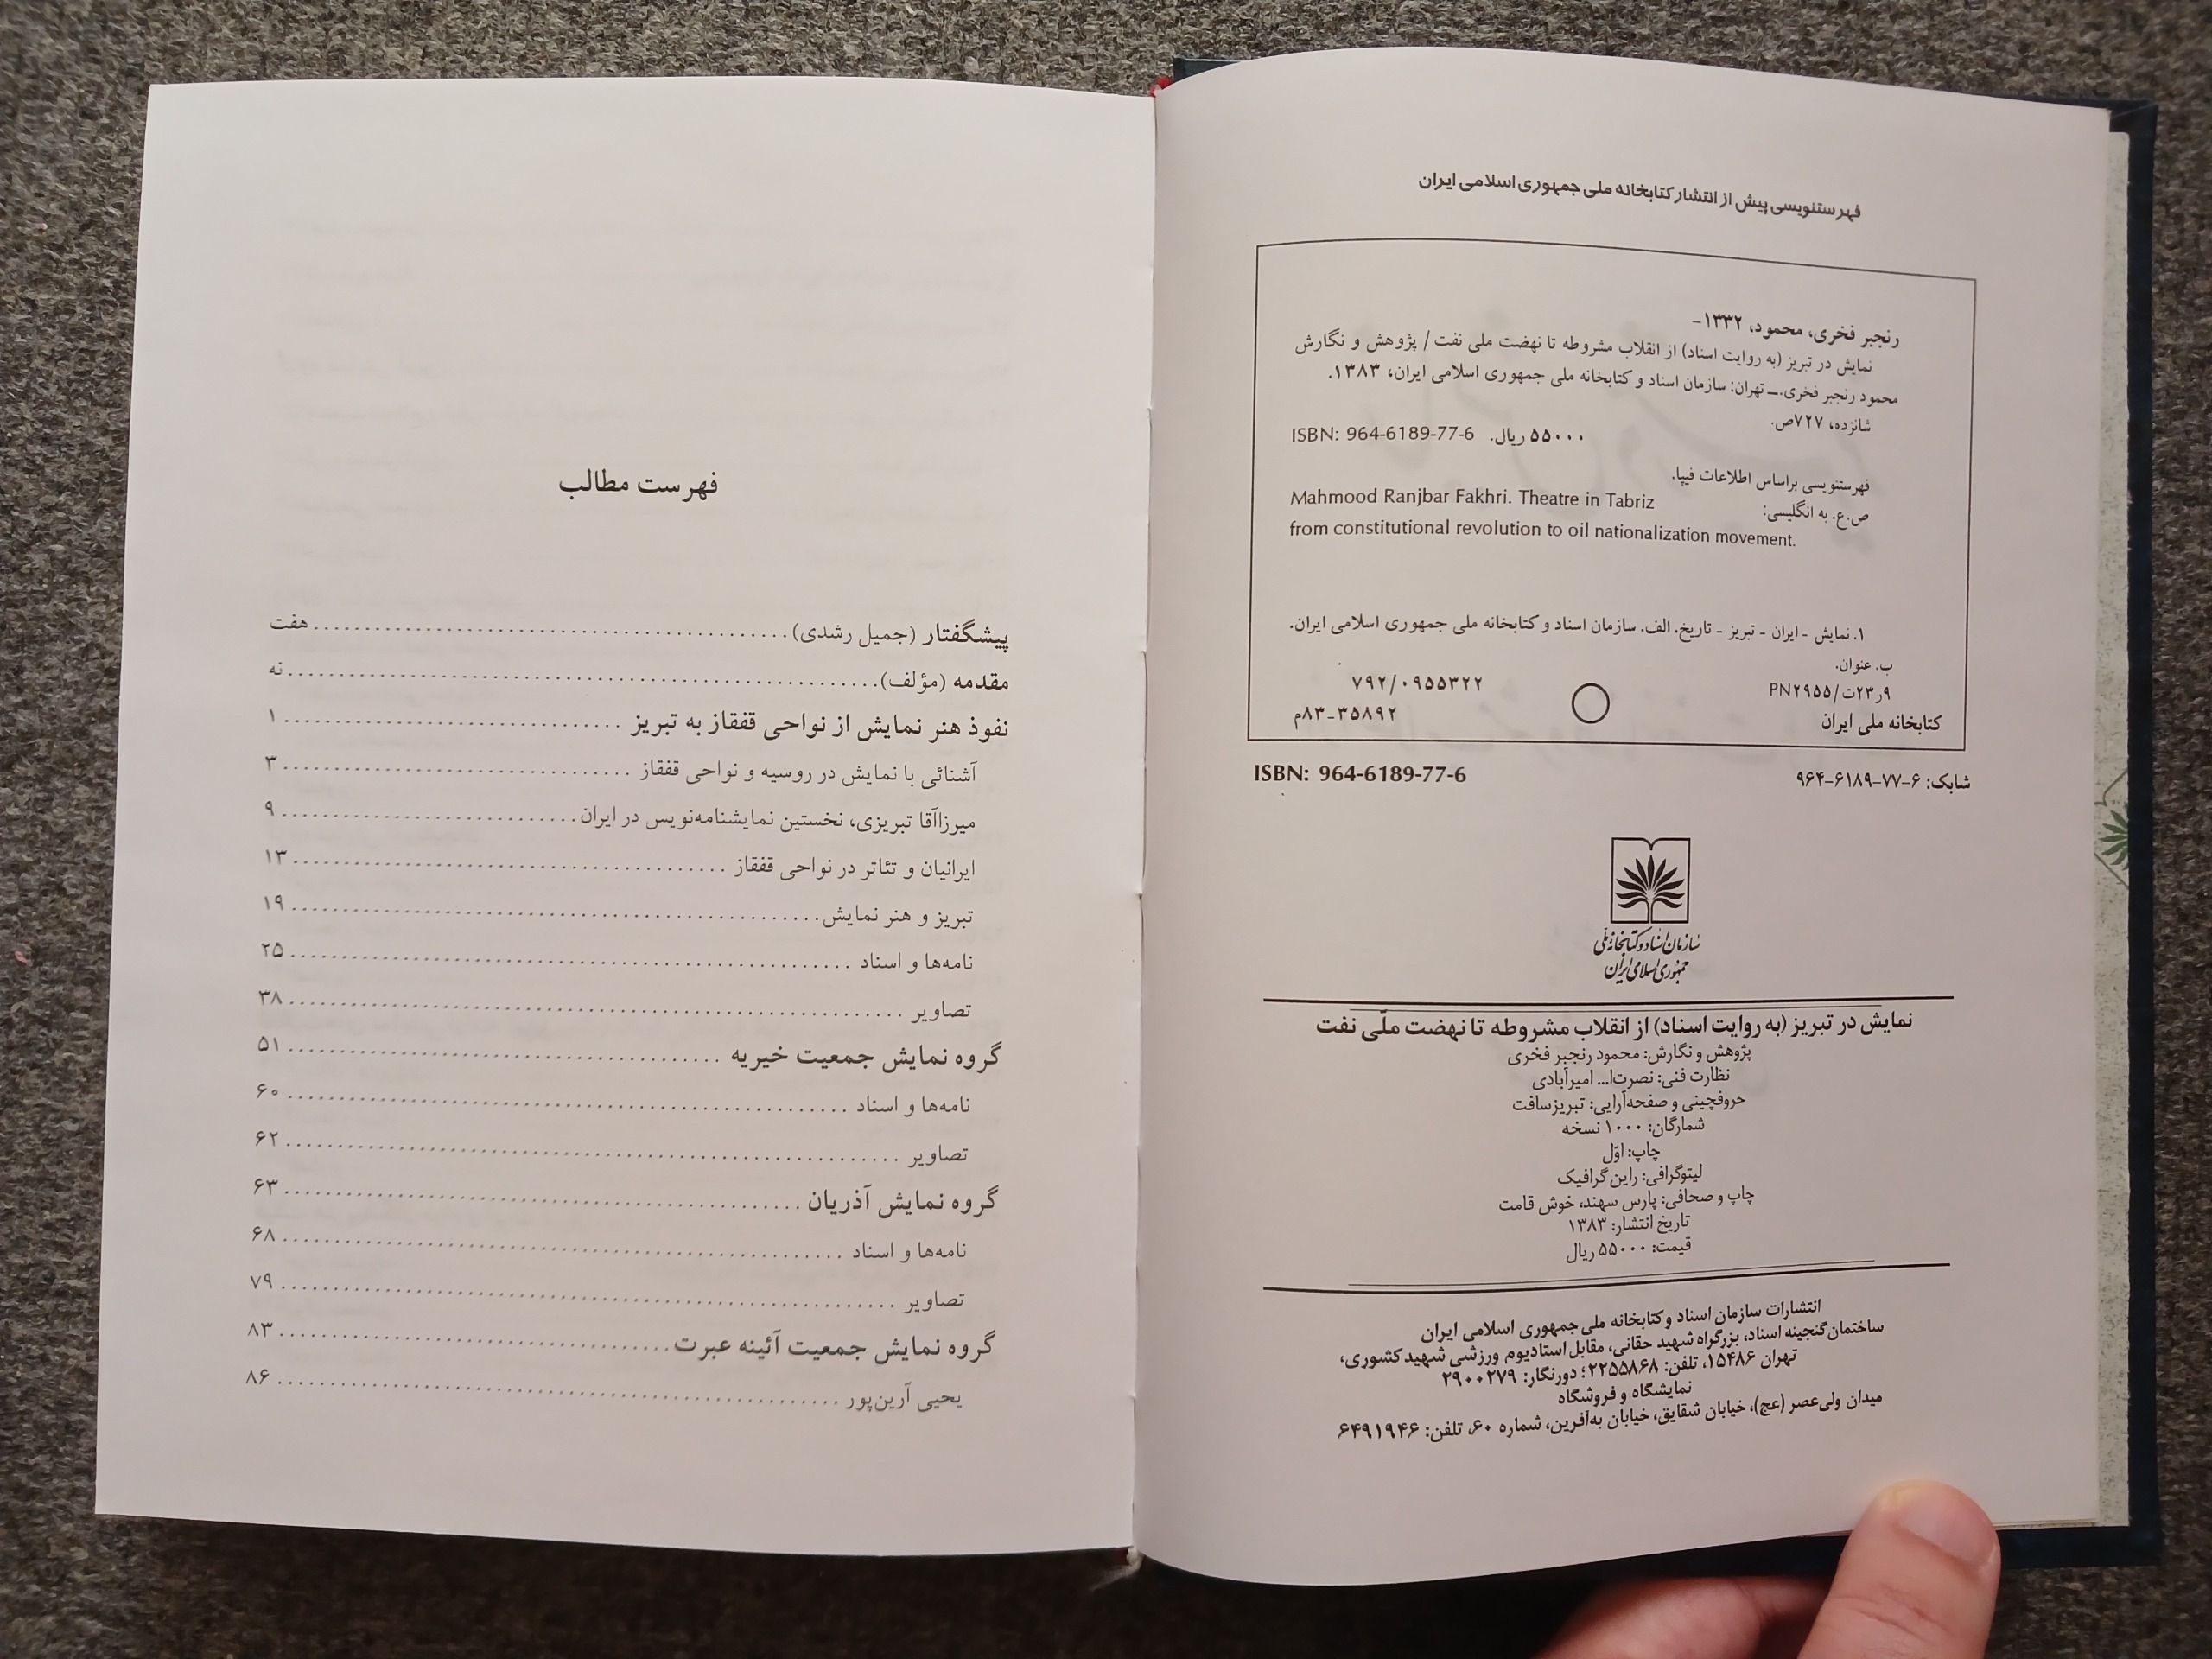 فهرستنویسی پیش از انتشار کتابخانه ملی جمهوری اسلامی ایران
رنجبر فخری، محمود، ۱۳۳۲-
نمایش در تبریز (به روایت اسناد) از انقلاب مشروطه تا نهضت ملی نفت / پژوهش و نگارش
محمود رنجبر فخری.ـ تهران: سازمان اسناد و کتابخانه ملی جمهوری اسلامی ایران، ۱۳۸۳.
شانزده، ۷۲۷ص.
ISBN: 964-6189-77-6 ۵۵۰۰۰ ریال.
فهرستنویسی براساس اطلاعات فیپا.
ص.ع. به انگلیسی: Mahmood Ranjbar Fakhri. Theatre in Tabriz
from constitutional revolution to oil nationalization movement.
۱. نمایش - ایران - تبریز - تاریخ. الف. سازمان اسناد و کتابخانه ملی جمهوری اسلامی ایران.
ب. عنوان.
۹ر۲۳ت/PN۲۹۵۵ ۷۹۲/۰۹۵۵۳۲۲
کتابخانه ملی ایران ۸۳-۳۵۸۹۲م
شابک: ۶-۷۷-۶۱۸۹-۹۶۴ ISBN: 964-6189-77-6
سازمان اسناد و کتابخانه ملی
جمهوری اسلامی ایران
نمایش در تبریز (به روایت اسناد) از انقلاب مشروطه تا نهضت ملّی نفت
پژوهش و نگارش: محمود رنجبر فخری
نظارت فنی: نصرت‌ا... امیرآبادی
حروفچینی و صفحه‌آرایی: تبریزسافت
شمارگان: ۱۰۰۰ نسخه
چاپ: اوّل
لیتوگرافی: راین گرافیک
چاپ و صحافی: پارس سهند، خوش قامت
تاریخ انتشار: ۱۳۸۳
قیمت: ۵۵۰۰۰ ریال
انتشارات سازمان اسناد و کتابخانه ملی جمهوری اسلامی ایران
ساختمان گنجینه اسناد، بزرگراه شهید حقانی، مقابل استادیوم ورزشی شهید کشوری،
تهران ۱۵۴۸۶، تلفن: ۲۲۵۵۸۶۸؛ دورنگار: ۲۹۰۰۲۷۹
نمایشگاه و فروشگاه
میدان ولی‌عصر (عج)، خیابان شقایق، خیابان به‌آفرین، شماره ۶۰، تلفن: ۶۴۹۱۹۴۶
فهرست مطالب
پیشگفتار (جمیل رشدی) ........ هفت
مقدمه (مؤلف) ........ نه
نفوذ هنر نمایش از نواحی قفقاز به تبریز ........ ۱
آشنائی با نمایش در روسیه و نواحی قفقاز ........ ۳
میرزاآقا تبریزی، نخستین نمایشنامه‌نویس در ایران ........ ۹
ایرانیان و تئاتر در نواحی قفقاز ........ ۱۳
تبریز و هنر نمایش ........ ۱۹
نامه‌ها و اسناد ........ ۲۵
تصاویر ........ ۳۸
گروه نمایش جمعیت خیریه ........ ۵۱
نامه‌ها و اسناد ........ ۶۰
تصاویر ........ ۶۲
گروه نمایش آذریان ........ ۶۳
نامه‌ها و اسناد ........ ۶۸
تصاویر ........ ۷۹
گروه نمایش جمعیت آئینه عبرت ........ ۸۳
یحیی آرین‌پور ........ ۸۶